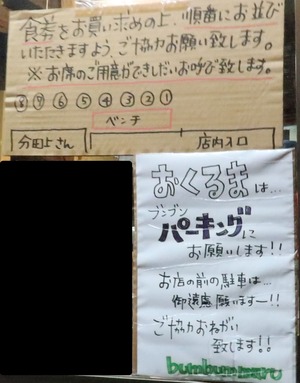 食券をお買い求めの上、順番にお並び
いただきますよう、ご協力お願い致します。
※お席のご用意ができしだいお呼び致します。
⑧⑦⑥⑤④③②①
ベンチ
店内入口
おくるまは…
ブンブン
パーキングに
お願いします!!
お店の前の駐車は…
御遠慮願いますー!!
ご協力おねがい
致します!!
bumbunmaru